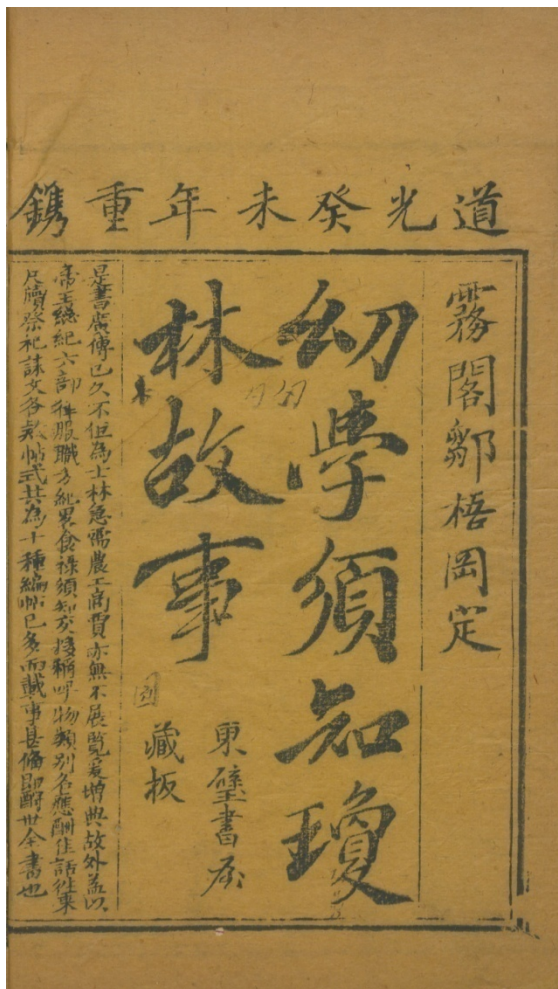 道光癸未年重鐫
霧閣鄒梧岡定
幼學須知瓊
林故事
東璧書屋
藏板
是書廣傳已久不但為士林急需農工商賈亦無不展覽爰增典故外益以
帝王總紀六部祥服職方紀畧食祿須知交接稱呼物類別名應酬佳話往來
尺牘祭祀誄文各欵帖式共為十種編帖已多而載事甚偹即酧世全書也